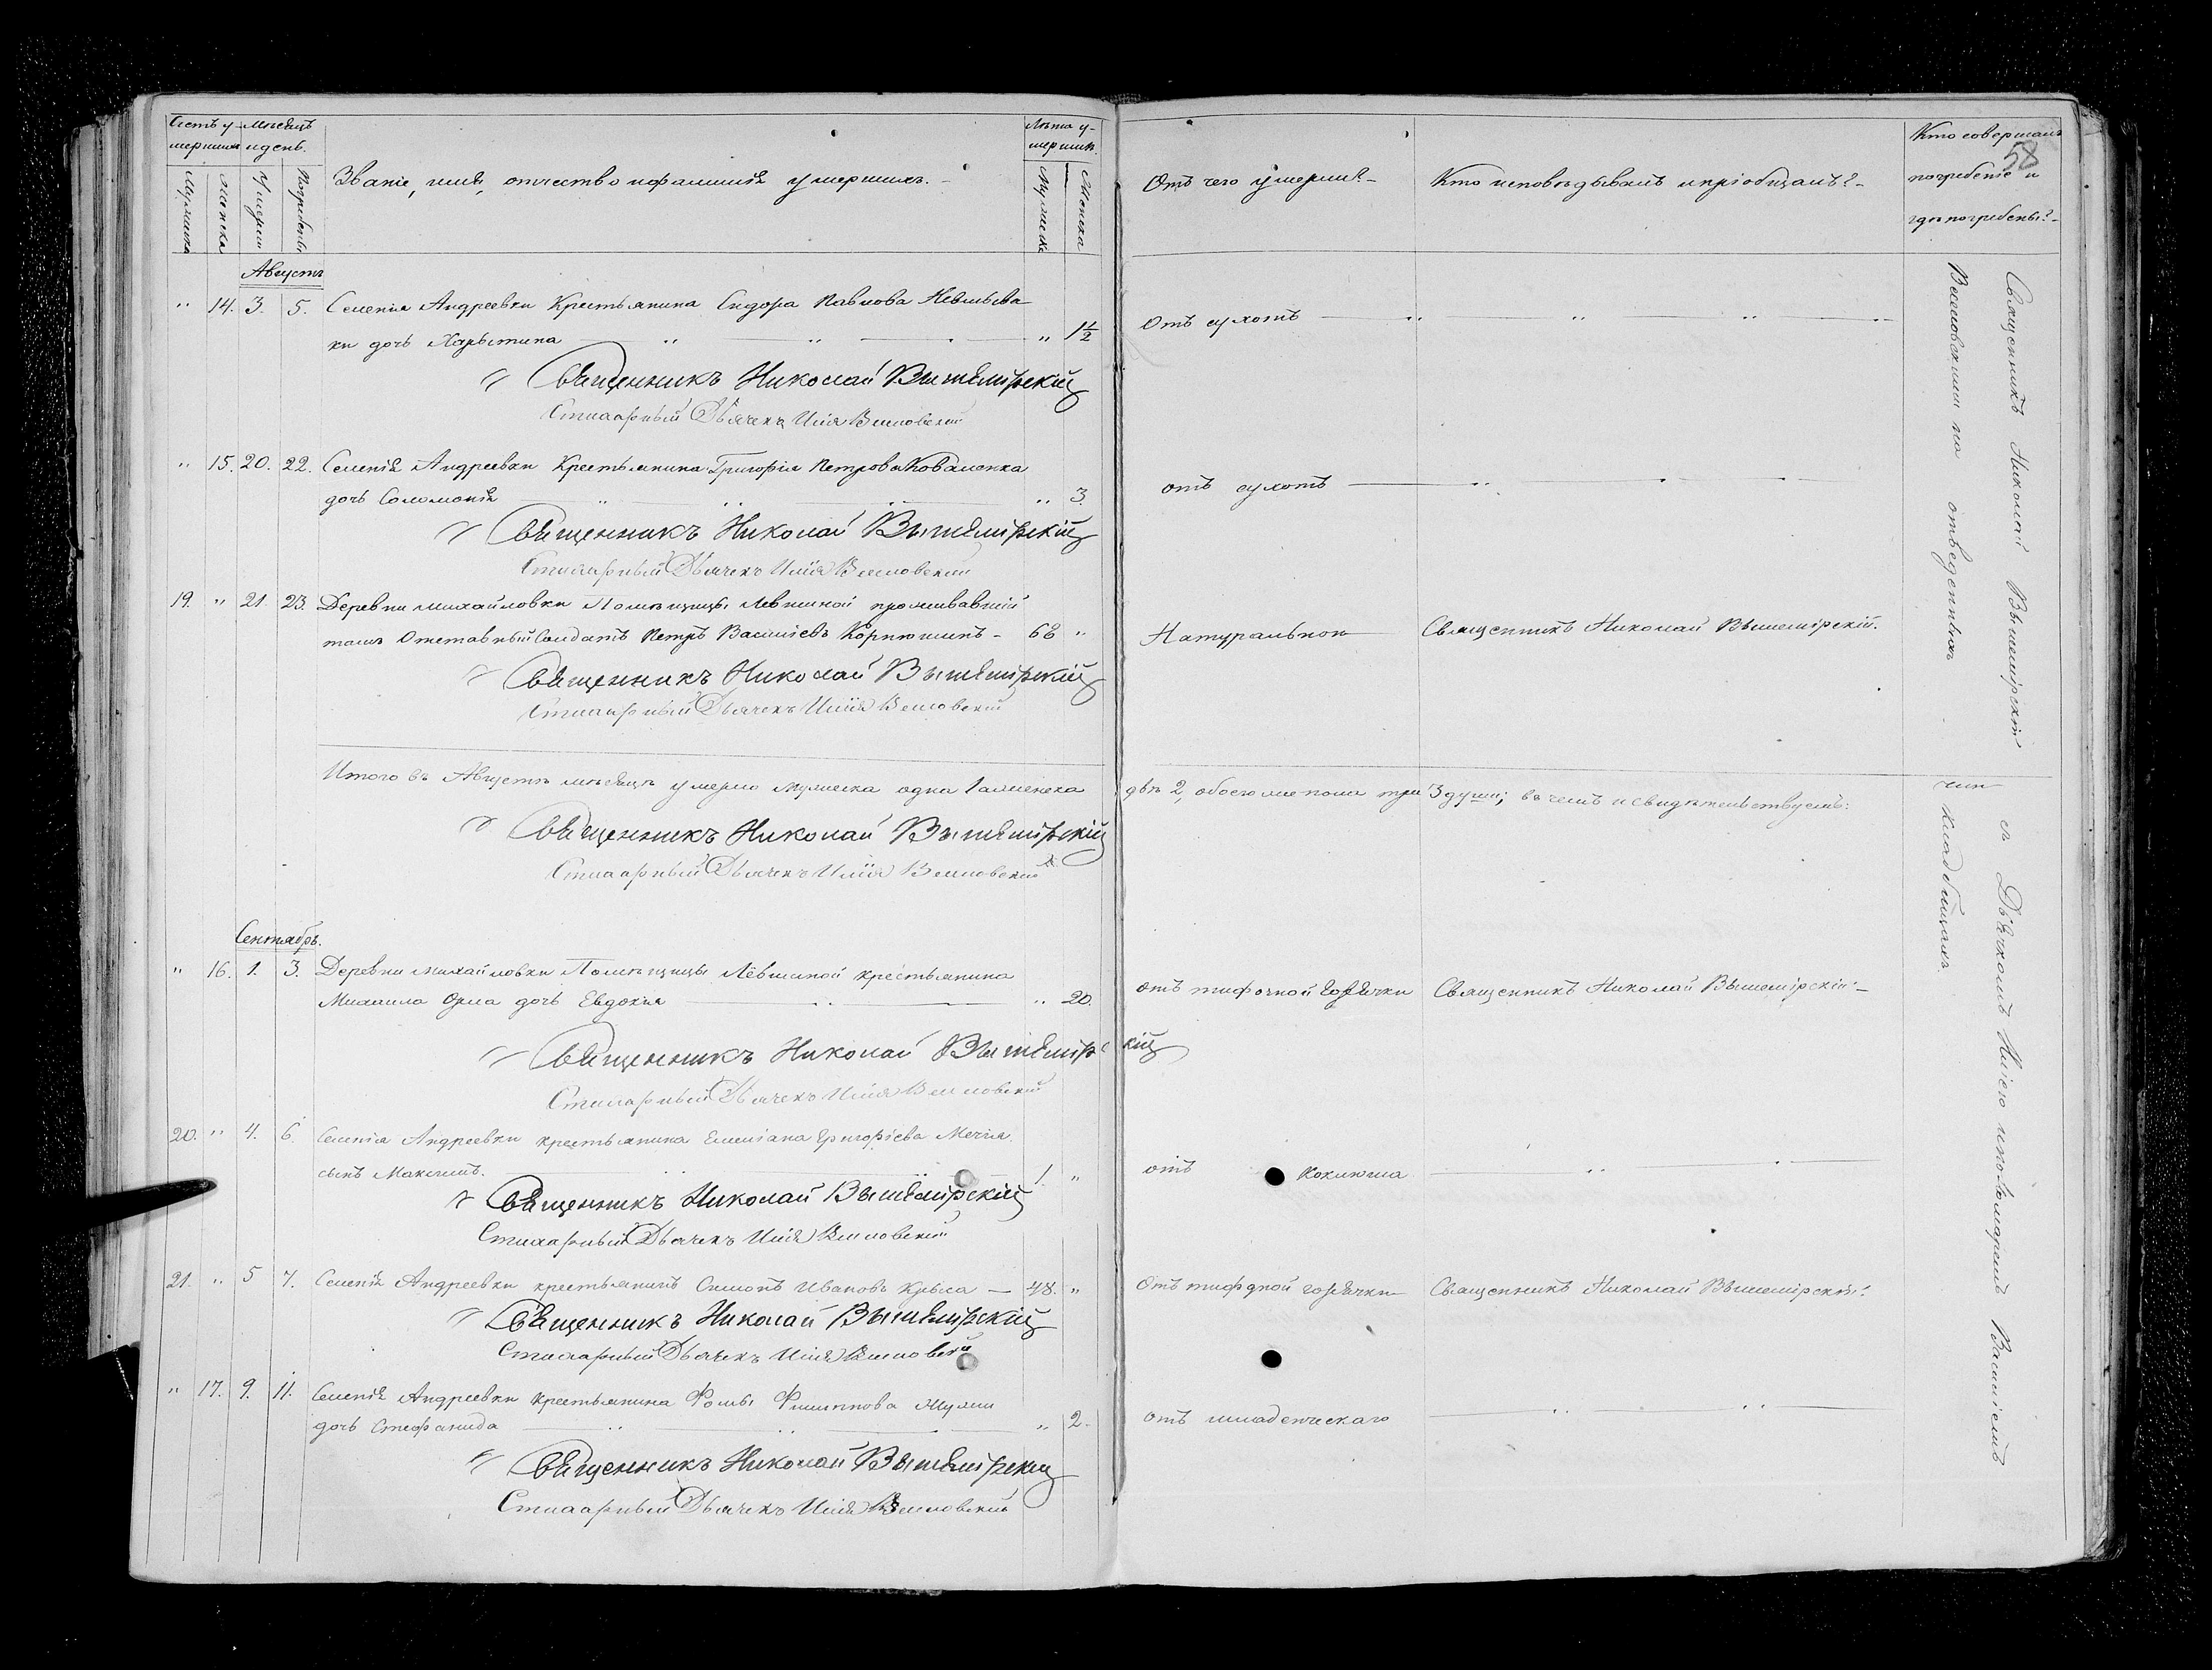 Счетъ умершихъ
Мѣсяцъ и день.
Званіе, имя, отчество и фамилія умершихъ.
Лѣта умершихъ.
Отъ чего умерли?
Кто исповѣдывалъ и пріобщалъ?
Кто совершалъ погребеніе и гдѣ погребены?
58
Мужеска
Женска
Умерли
Погребены
Мужеска
Женска
Августъ
" 14. 3. 5. Селенія Андреевки Крестьянина Сидора Павлова
ки дочь Харытина " 1 1/2
Отъ сухотъ
Священникъ Николай Вышемірскій
Стихарный Дьячекъ Илія
" 15. 20. 22. Селенія Андреевки Крестьянина Григорія Петрова Коваленка
дочь Соломонія " 3.
отъ сухотъ
Священникъ Николай Вышемірскій
Стихарный Дьячекъ Илія
19. " 21. 23. Деревни Михайловки Помѣщицы Левшиной проживавшій
тамъ Отставный Солдатъ Петръ Василіевъ Корнюшинъ - 68 "
Натуральною
Священникъ Николай Вышемірскій.
Священникъ Николай Вышемірскій
Стихарный Дьячекъ Илія
Итого въ Августѣ мѣсяцѣ умерло мужеска одна 1 а женска двѣ 2, обоего же пола три 3 души; въ чемъ и свидѣтельствуемъ:
Священникъ Николай Вышемірскій
Стихарный Дьячекъ Илія
Сентябрь.
" 16. 1. 3. Деревни Михайловки Помѣщицы Левшиной крестьянина
Михаила Орла дочь Евдокія " 20.
отъ тифозной горячки
Священникъ Николай Вышемірскій
Священникъ Николай Вышемірскій
Стихарный Дьячекъ Илія
20. " 4. 6. Селенія Андреевки крестьянина Емеліана Григоріева
сынъ Максимъ. 1. "
отъ коклюша
Священникъ Николай Вышемірскій
Стихарный Дьячекъ Илія
21. " 5 7. Селенія Андреевки крестьянинъ Симонъ Ивановъ Крыса — 48. "
Отъ тифозной горячки
Священникъ Николай Вышемірскій.
Священникъ Николай Вышемірскій
Стихарный Дьячекъ Илія
" 17. 9. 11. Селенія Андреевки крестьянина Фомы Филиппова
дочь Стефанида " 2.
отъ младенческаго
Священникъ Николай Вышемірскій
Стихарный Дьячекъ Илія
Священникъ Николай Вышемірскій съ Дьячкомъ Иліею и Пономаремъ Василіемъ
на отведенныхъ кладбищахъ